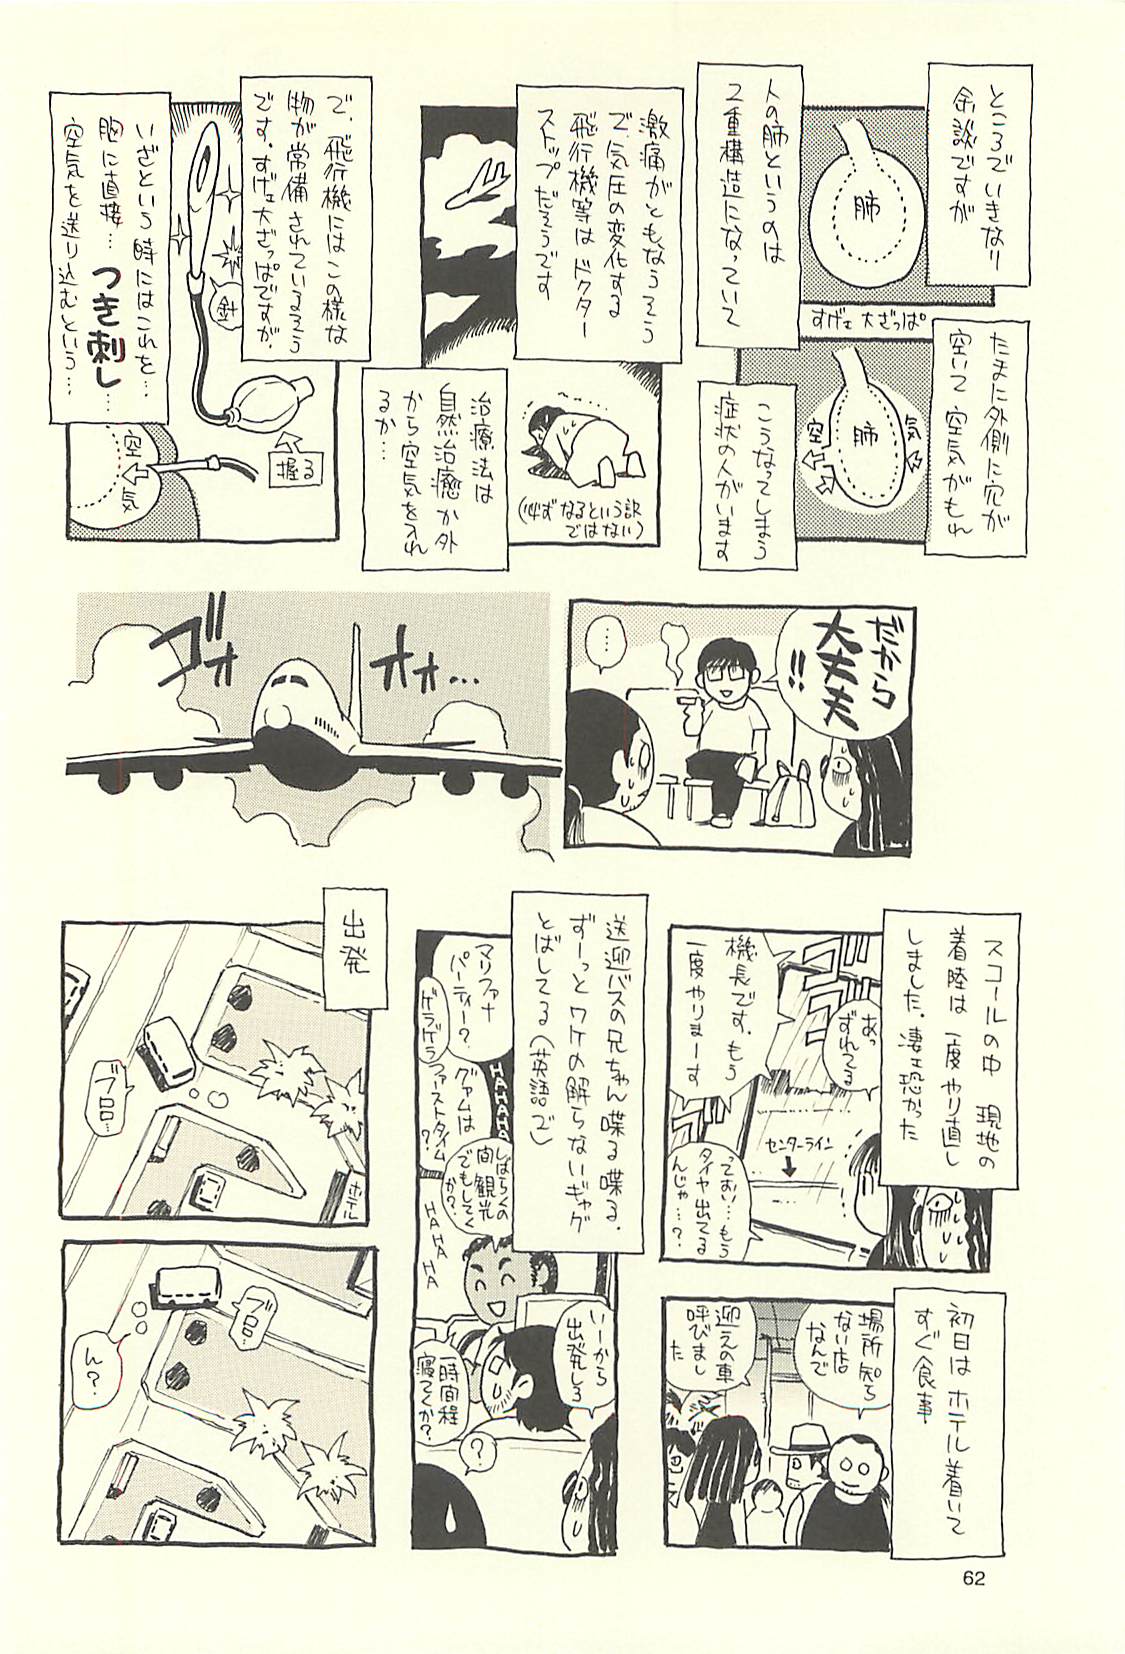 ところでいきなり
余談ですが
肺
すげェ大ざっぱ
人の肺というのは
2重構造になっていて
たまに外側に穴が
空いて空気がもれ
肺
空気
こうなってしまう
症状の人がいます
激痛がともなうそう
で、気圧の変化する
飛行機等はドクター
ストップだそうです
(必ずなるという訳
ではない)
治療法は
自然治癒か外
から空気を入れ
るか…
で、飛行機にはこの様な
物が常備されているそう
です。すげェ大ざっぱですが、
針
握る
いざという時にはこれを…
胸に直接…つき刺し…
空気を送り込むという…
空気
だから
大丈夫
!!
…
ゴゴォ
オォ…
スコールの中 現地の
着陸は一度やり直し
しました。凄ェ恐かった
あっ
ずれてる
機長です。もう
一度やりまーす
センターライン
っておい…もう
タイヤ出てる
んじゃ…?
初日はホテル着いて
すぐ食事
場所知ら
ない店
なんで
迎えの車
呼びまし
た
送迎バスの兄ちゃん喋る喋る。
ずーっとワケの解らないギャグ
とばしてる(英語で)
マリファナ
パーティー?
ゲラゲラ
HAHAHA
グァムは
ファーストタイム
?
しばらくの
間観光
でもしてく
か?
HA
HA
HA
いーから
出発しろ
一時間程
寝てくか?
?
出発
ブロロ…
ホテル
ブロロ…
ん?
62